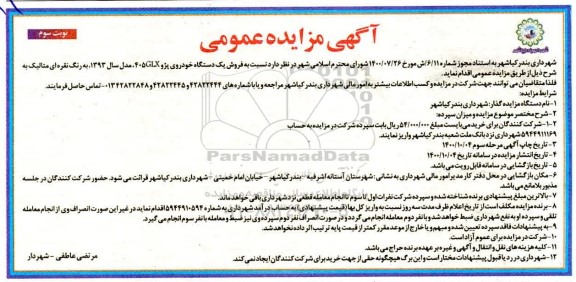 آگهی مزایده عمومی
نوبت سوم
شهرداری بندر کیاشهر به استناد مجوز شماره ۶/۱۱/ش مورخ ۱۴۰۰/۰۷/۲۶ شورای محترم اسلامی شهر در نظر دارد نسبت به فروش یک دستگاه خودروی پژو ۴۰۵GLX، مدل سال ۱۳۹۳، به رنگ نقره ای متالیک به
شرح ذیل از طریق مزایده عمومی اقدام نماید.
فلذا متقاضیان می توانند جهت شرکت در مزایده و کسب اطلاعات بیشتر به امور مالی شهرداری بندر کیاشهر مراجعه و یا با شماره های ۴۲۸۲۲۴۴۴ و ۴۲۸۲۳۴۴۵ و ۰۱۳۴۲۸۲۲۸۴۸ تماس حاصل فرمایند.
شرایط مزایده:
۱- نام دستگاه مزایده گذار: شهرداری بندر کیاشهر
۲- شرح مختصر موضوع مزایده و میزان سپرده:
۲-۱- شرکت کنندگان برای خرید می بایست مبلغ ۵۴/۰۰۰/۰۰۰ ریال بابت سپرده شرکت در مزایده به حساب
۵۹۴۴۹۱۱۱۶۹ شهرداری نزد بانک ملت شعبه بندر کیاشهر واریز نمایند.
۳- تاریخ چاپ آگهی مرحله سوم ۱۴۰۰/۱۰/۰۴
۴- تاریخ انتشار مزایده در سامانه تاریخ ۱۴۰۰/۱۰/۰۴
۵- تاریخ بازگشایی در سامانه قابل رویت می باشد.
۶- مکان بازگشایی در محل دفتر کار مدیر امور مالی شهرداری به نشانی: شهرستان آستانه اشرفیه - بندر کیاشهر - خیابان امام خمینی - شهرداری بندر کیاشهر قرائت می شود. حضور شرکت کنندگان در جلسه
مذبور بلامانع می باشد.
۷- بالاترین مبلغ پیشنهادی برنده شناخته شده و سپرده شرکت نفرات اول تا سوم تا انجام معامله قطعی نزد شهرداری باقی خواهد ماند.
۸- برنده مزایده مکلف است از تاریخ اعلام ظرف مدت سه روز نسبت به واریز کل بها (قیمت پیشنهادی) به حساب درآمد شهرداری به شماره ۵۹۴۴۹۱۰۵۹۴ اقدام نماید در غیر این صورت انصراف وی از انجام معامله
تلقی و سپرده او به نفع شهرداری ضبط خواهد شد و با نفر دوم معامله انجام می گردد و در صورت انصراف نفر دوم سپرده وی نیز ضبط و معامله با نفر سوم انجام می گیرد.
۹- به پیشنهادات فاقد سپرده تعیین شده و مبهم و یا خارج از موعد مقرر کمتر از قیمت پایه ترتیب اثر داده نخواهد شد.
۱۰- شرکت در مزایده برای عموم آزاد است.
۱۱- کلیه هزینه های نقل و انتقال و آگهی و غیره بر عهده برنده حراج می باشد.
۱۲- شهرداری در رد یا قبول پیشنهادات مختار است و این برگ هیچگونه حقی از جهت خرید برای شرکت کنندگان ایجاد نمی کند.
مرتضی عاطفی - شهردار
ParsNamadData